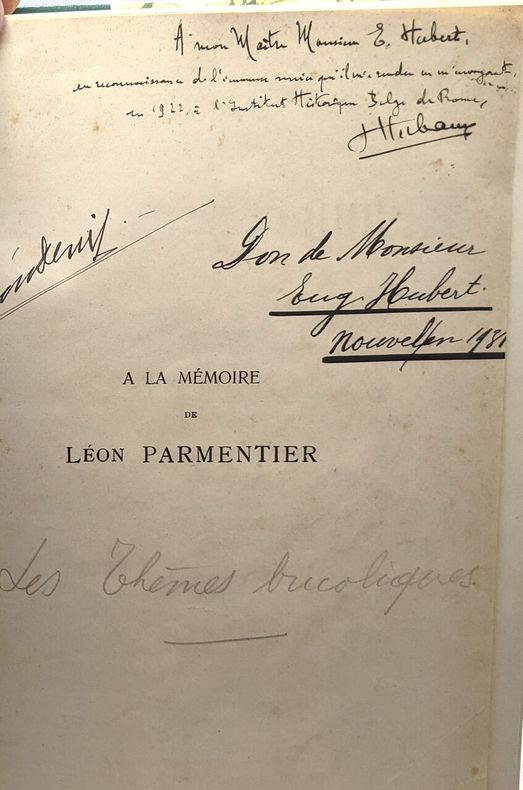 A mon Maître Monsieur E. Hubert,
en reconnaissance de l'immense service qu'il m'a rendu en m'envoyant,
en 1922, à l'Institut Historique Belge de Rome,
J Hubaux
Don de Monsieur
Eug. Hubert.
Nouvel an 1931
A LA MÉMOIRE
DE
LÉON PARMENTIER
Les Thèmes bucoliques